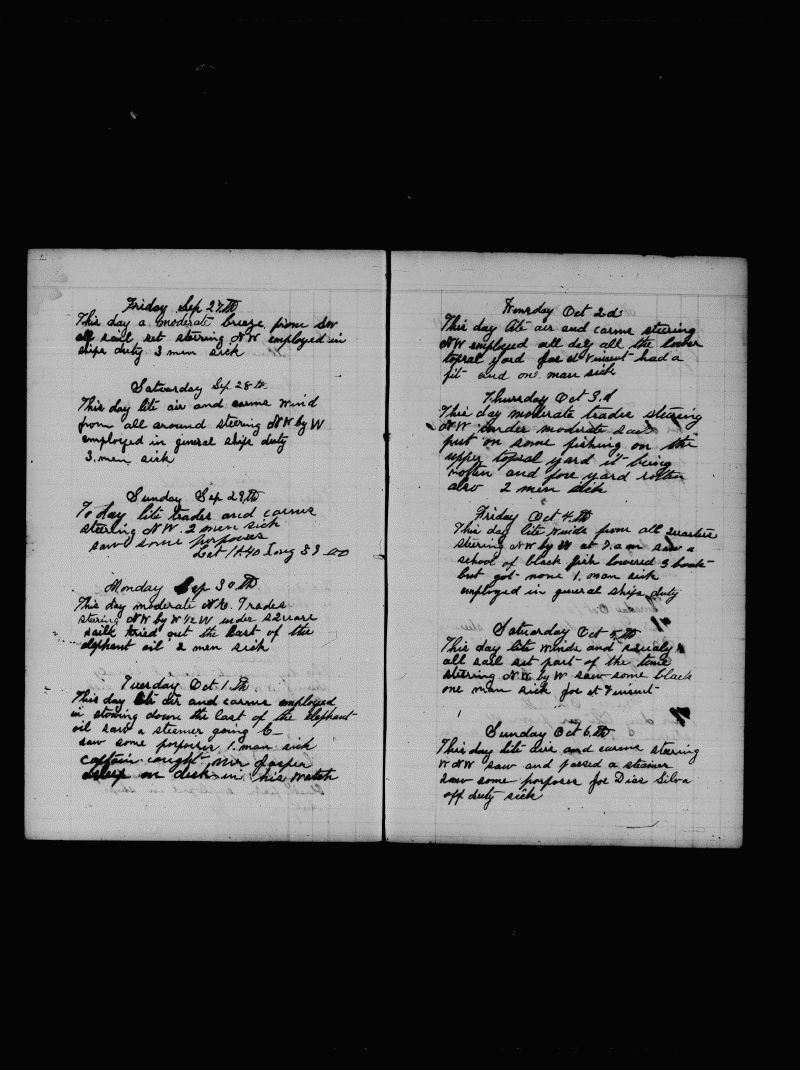 Friday Sep 27.th
This day a moderate breeze from SW
all sail set sterring NW employed in
ships duty 3 men sick
Satuarday Sep 28 th
This day lite air and carms wind
from all around steering NW by W
employed in general ships duty
3. men sick
Sunday Sep 29,th
To day lite trades and carms
steerring NW. 2 men sick
saw some porposes
Lat 1140 Long 33 00
Monday Sep 30 th
This day moderate N.E. Trades
steering NW by W 1/2 W under square
sails tried out the last of the
elephant oil 2 men sick
Tuesday Oct 1. th
This day lite air and carms employed
in stowing down the last of the Elephant
oil saw a steemer going E
saw some porposes 1. man sick
Captain caught Mr Gasper
asleep on deck in his watch
Wensday Oct 2d
This day lite air and carms steering
NW employed all day all the lower
topsal yard Joe st Vinsent had a
fit and one man sick
Thursday Oct 3.d
This day moderate trades steering
NW under moderate sail
put on some fishing on the
upper topsal yard it being
rotten and fore yard rotten
also 2 men sick
Friday Oct 4.th
This day lite winds from all quarters
steering NW by W at 7. a.m saw a
school of black fish lowered 3 boats
but got none 1. man sick
employed in general ships duty
Satuarday Oct 5,th
This day lite winds and squaly
all sail set part of the time
steering NW by W saw some black
one man sick Joe st Vinsent
Sunday Oct 6.th
This day lite air and carms steering
W N W saw and passed a steamer
saw some porposes Joe Dias Silva
off duty sick